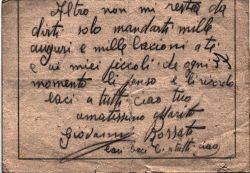 Altro non mi resta da
dirti solo mandarti mille
auguri e mille baccioni a te
e ai miei piccoli che ogni
momento li penso e li ricordo
baci a tutti ciao tuo
amatissimo Marito
Giovanni Bossato
baci baci a tutti ciao